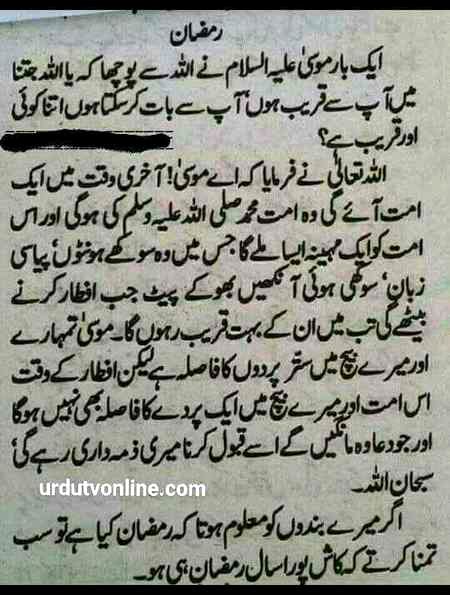 رمضان
ایک بار موسیٰ علیہ السلام نے اللہ سے پوچھا کہ یا اللہ جتنا
میں آپ سے قریب ہوں‘ آپ سے بات کر سکتا ہوں اتنا کوئی
اور قریب ہے؟
اللہ تعالیٰ نے فرمایا کہ اے موسیٰ! آخری وقت میں ایک
امت آئے گی وہ امت محمد صلی اللہ علیہ وسلم کی ہوگی اور اس
امت کو ایک مہینہ ایسا ملے گا جس میں وہ سوکھے ہونٹوں‘ پیاسی
زبان‘ سوکھی ہوئی آنکھیں بھوکے پیٹ جب افطار کرنے
بیٹھے گی تب میں ان کے بہت قریب رہوں گا۔ موسیٰ تمہارے
اور میرے بیچ میں ستّر پردوں کا فاصلہ ہے لیکن افطار کے وقت
اس امت اور میرے بیچ میں ایک پردے کا فاصلہ بھی نہیں ہوگا
اور جو دعا وہ مانگیں گے اسے قبول کرنا میری ذمہ داری رہے گی‘
سبحان اللہ۔
urdutvonline.com
اگر میرے بندوں کو معلوم ہوتا کہ رمضان کیا ہے تو سب
تمنا کرتے کہ کاش پورا سال رمضان ہی ہو۔